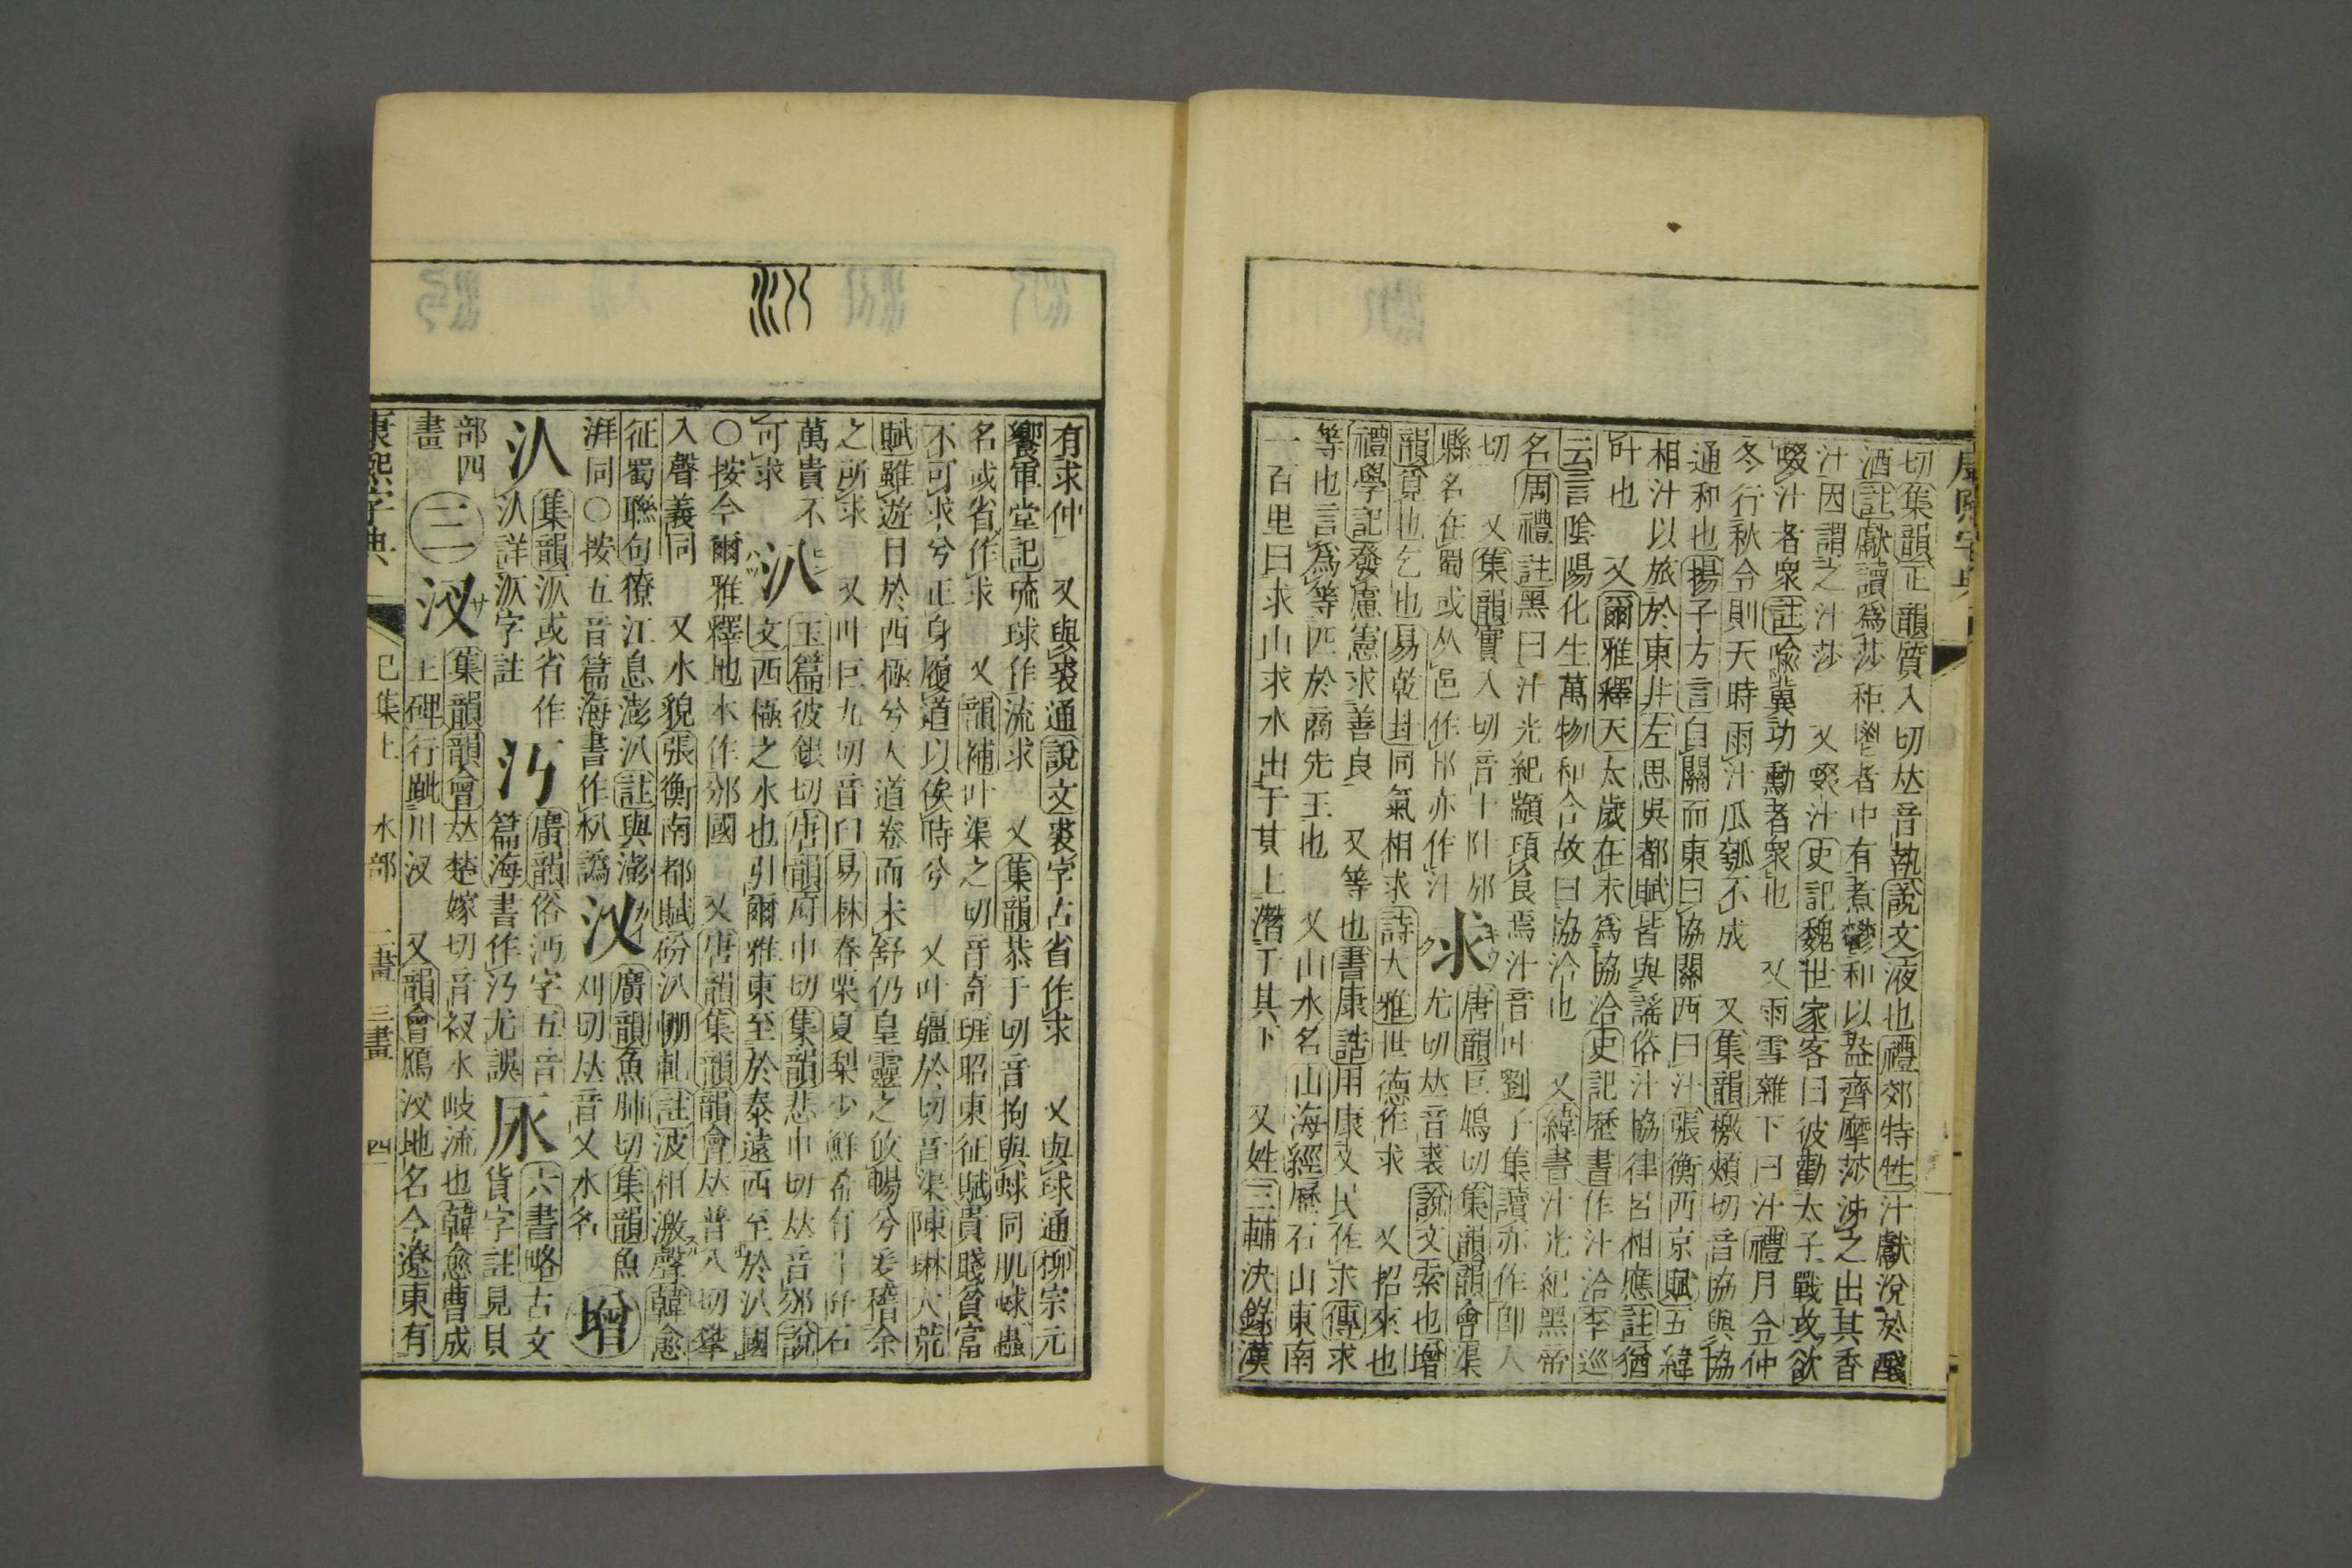 切集韻正韻質入切𠀤音執說文液也禮郊特牲汁獻涗於醆
酒註獻讀爲莎秬鬯者中有煮鬱和以盎齊摩莎泲之出其香
汁因謂之汁莎 又啜汁史記魏世家客曰彼勸太子戰攻欲
啜汁者衆註喩冀功勳者衆也 又雨雪雜下曰汁禮月令仲
冬行秋令則天時雨汁瓜瓠不成 又集韻檄頰切音協與協
通和也揚子方言自關而東曰協關西曰汁張衡西京賦五緯
相汁以旅於東井左思吳都賦皆與謠俗汁協律呂相應註猶
叶也 又爾雅釋天太歲在未爲協洽史記歷書作汁洽李巡
云言陰陽化生萬物和合故曰協洽也 又緯書汁光紀黑帝
名周禮註黑曰汁光紀顓頊食焉汁音叶劉子集讀亦作卽入
切 又集韻實入切音十汁邡
縣名在蜀或从邑作邡亦作汁
求
キウ
ク
唐韻巨鳩切集韻韻會渠
尤切𠀤音裘說文索也增
韻覓也乞也易乾卦同氣相求詩大雅世德作求 又招來也
禮學記發慮憲求善良 又等也書康誥用康乂民作求傳求
等也言爲等匹於商先王也 又山水名山海經歷石山東南
一百里曰求山求水出于其上潛于其下 又姓三輔決錄漢
有求仲 又與裘通說文裘字古省作求 又與球通柳宗元
饗軍堂記琉球作流求 又集韻恭于切音拘與蛷同肌蛷蟲
名或省作求 又韻補叶渠之切音奇班昭東征賦貴賤貧富
不可求兮正身履道以俟時兮 又叶疆於切音渠陳琳大荒
賦雖遊日於西極兮大道卷而未舒仍皇靈之攸暢兮爰稽余
之所求 又叶巨九切音臼易林春栗夏梨少鮮希有斗千石
萬貴不
可求
汃
ヒン
ハツ
玉篇彼銀切唐韻府巾切集韻悲巾切𠀤音邠說
文西極之水也引爾雅東至於泰遠西至於汃國
〇按今爾雅釋地本作邠國 又唐韻集韻韻會𠀤普八切攀
入聲義同 又水貌張衡南都賦砏汃輣軋註波相激聲韓愈
征蜀聯句獠江息澎汃註與澎
湃同〇按五音篇海書作朳譌
汷
廣韻魚肺切集韻魚
刈切𠀤音乂水名
增
汄
集韻汳或省作
汄詳汳字註
汅
廣韻俗沔字五音
篇海書作汅尤誤
𣱵
六書略古文
貨字註見貝
部四
畫
三
汊
サ
集韻韻會𠀤楚嫁切音衩水岐流也韓愈曹成
王碑行跐川汊 又韻會鴈汊地名今遼東有
康熙字典 巳集上 水部 二畫 三畫 四